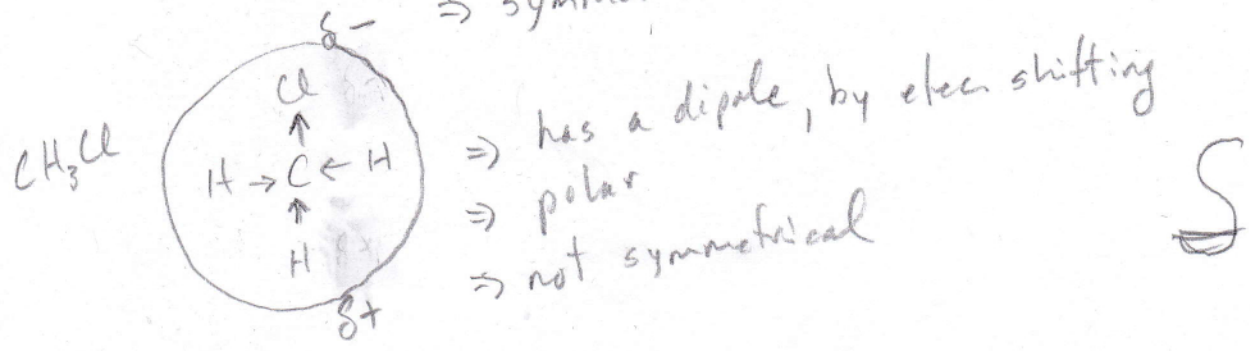 δ- ⇒ symm
Cl
↑
CH₃Cl H → C ← H ⇒ has a dipole, by elec. shifting
↑ ⇒ polar
H ⇒ not symmetrical
δ+